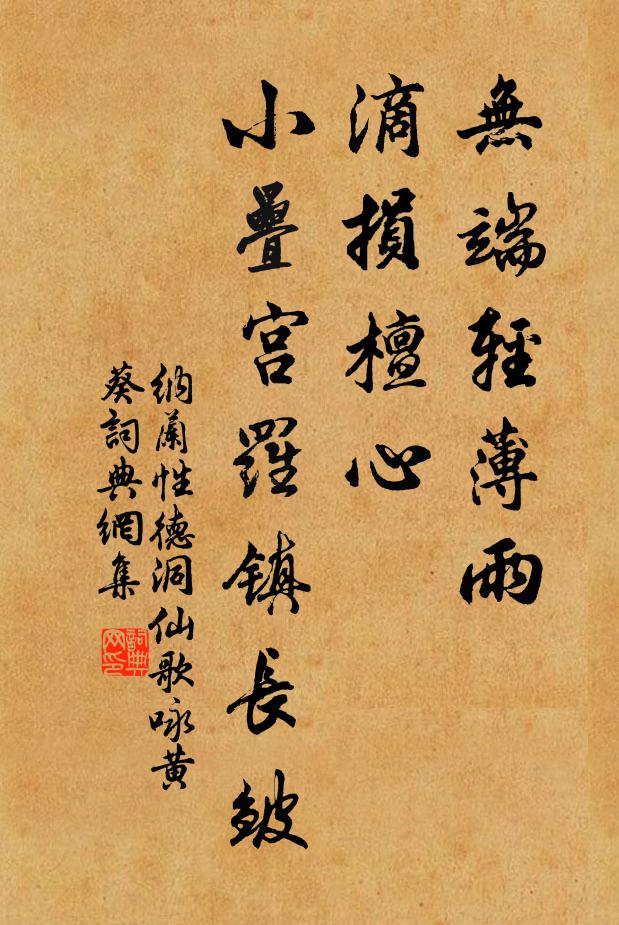 無端輕薄雨
滴損檀心
小疊宮羅鎮長皺
納蘭性德洞仙歌咏黃
葵詞典網集
詞典
网印